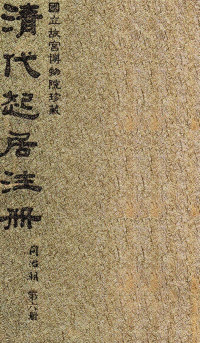 國立故宮博物院珍藏
清代起居注冊
同治朝 第六冊